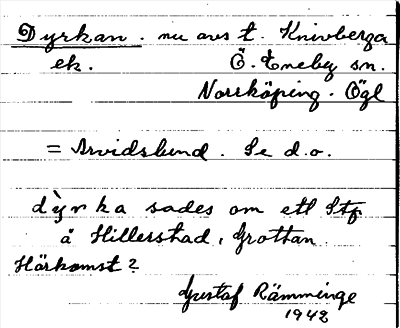 Dyrkan. nu avs t. Knivberga
ek. Ö. Eneby sn.
Norrköping. Ögl
= Arvidslund. Se d.o.
dy̌rka sades om ett Stp
å Hillerstad, Grottan.
Härkomst?
Gustaf Rämminge
1942